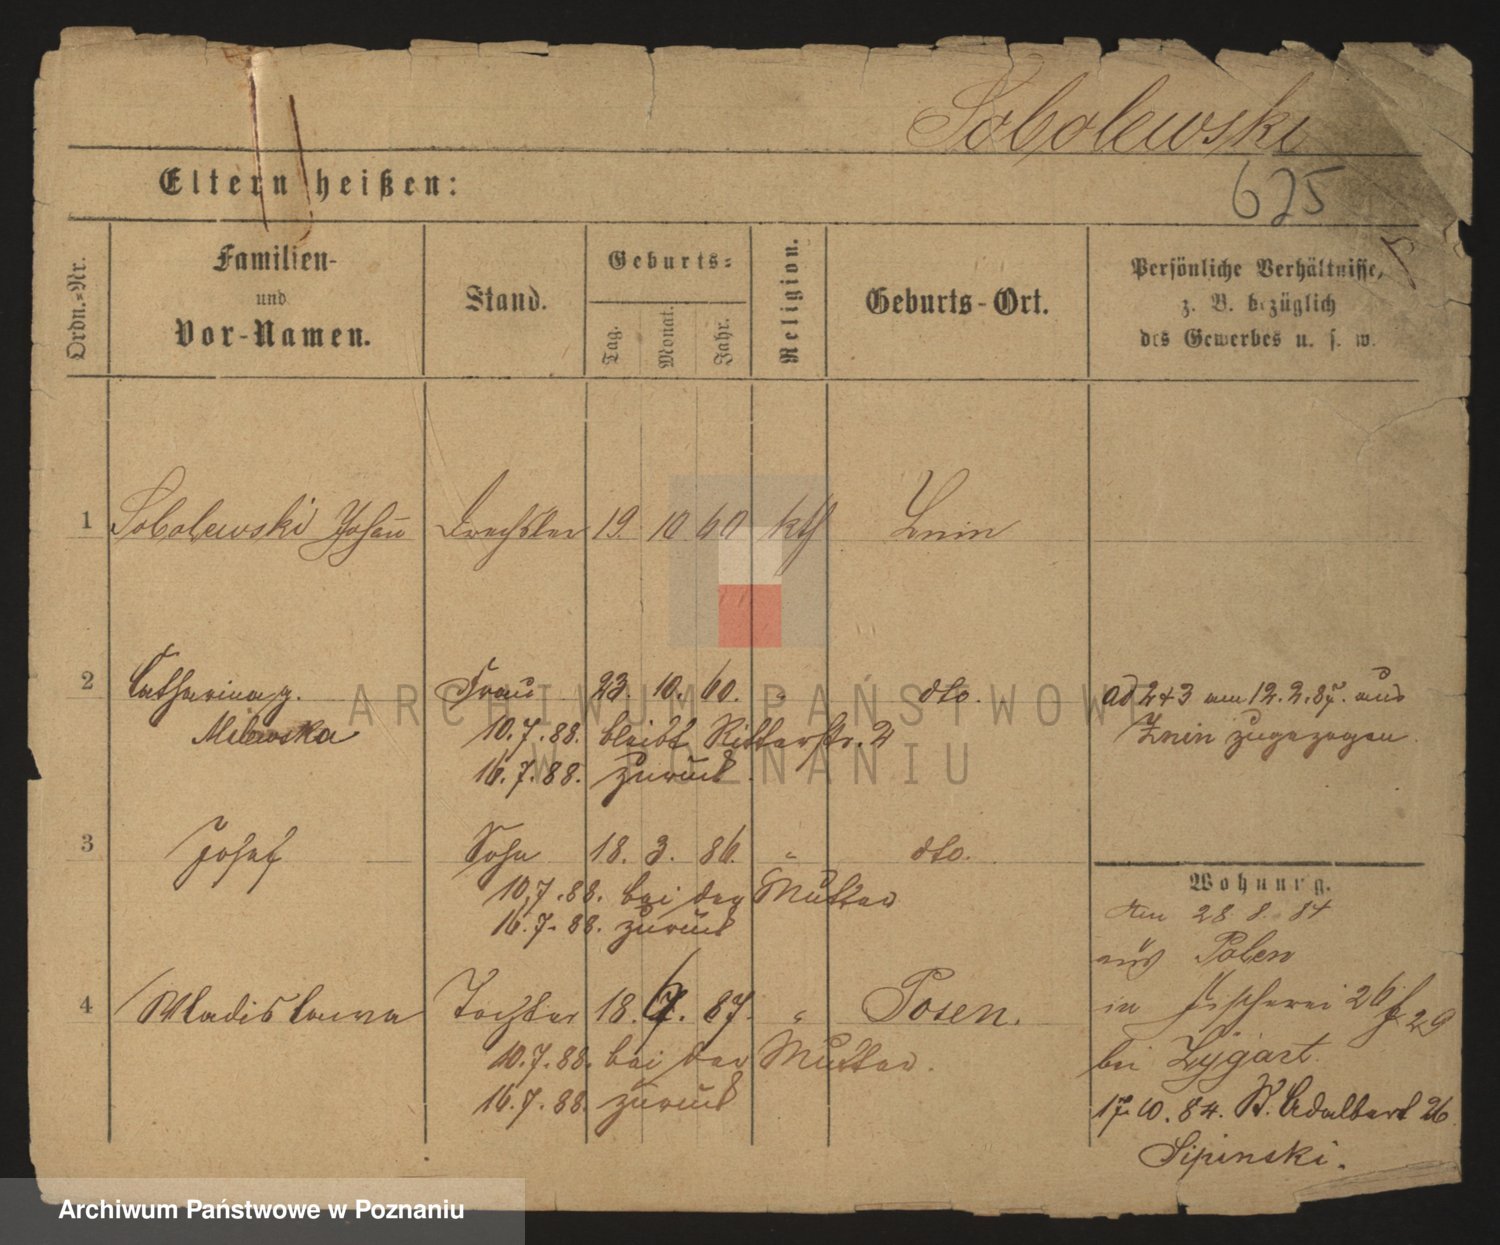 Sobolewski
Eltern heißen:
625
Ordn.=Nr.
Familien-
und
Vor-Namen.
Stand.
Geburts=
Tag.
Monat.
Jahr.
Religion.
Geburts-Ort.
Persönliche Verhältnisse,
z. B. bezüglich
des Gewerbes u. s. w.
1 Sobolewski Johann Drechsler 19. 10 60 kth Znin
2 Catharina g. Frau 23. 10. 60. " dto.
Milewska 10.7.88. bleibt Ritterstr. 2
16.7.88. zurück
ad 2+3 am 12.2.87. aus
Znin zugezogen
3 Josef Sohn 18. 3. 86. " dto.
10.7.88. bei der Mutter
16.7.88. zurück
4 Wladislawa Tochter 18. 6. 87. " Posen.
10.7.88. bei der Mutter.
16.7.88. zurück
Wohnung.
den 28 8. 84
aus Polen
in Fischerei 26 29
bei Zygart.
17.10.84. St. Adalbert 26
Sipinski.
ARCHIWUM PAŃSTWOWE
W POZNANIU
Archiwum Państwowe w Poznaniu